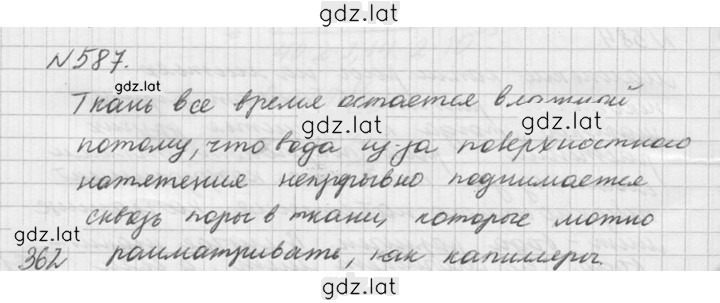 gdz.lat
N 587.
gdz.lat
Ткань все время остается влажной
gdz.lat
gdz.lat
потому, что вода из-за поверхностного
натяжения непрерывно поднимается
сквозь поры в ткани, которые можно
gdz.lat
gdz.lat
362 рассматривать, как капилляры.
gdz.lat